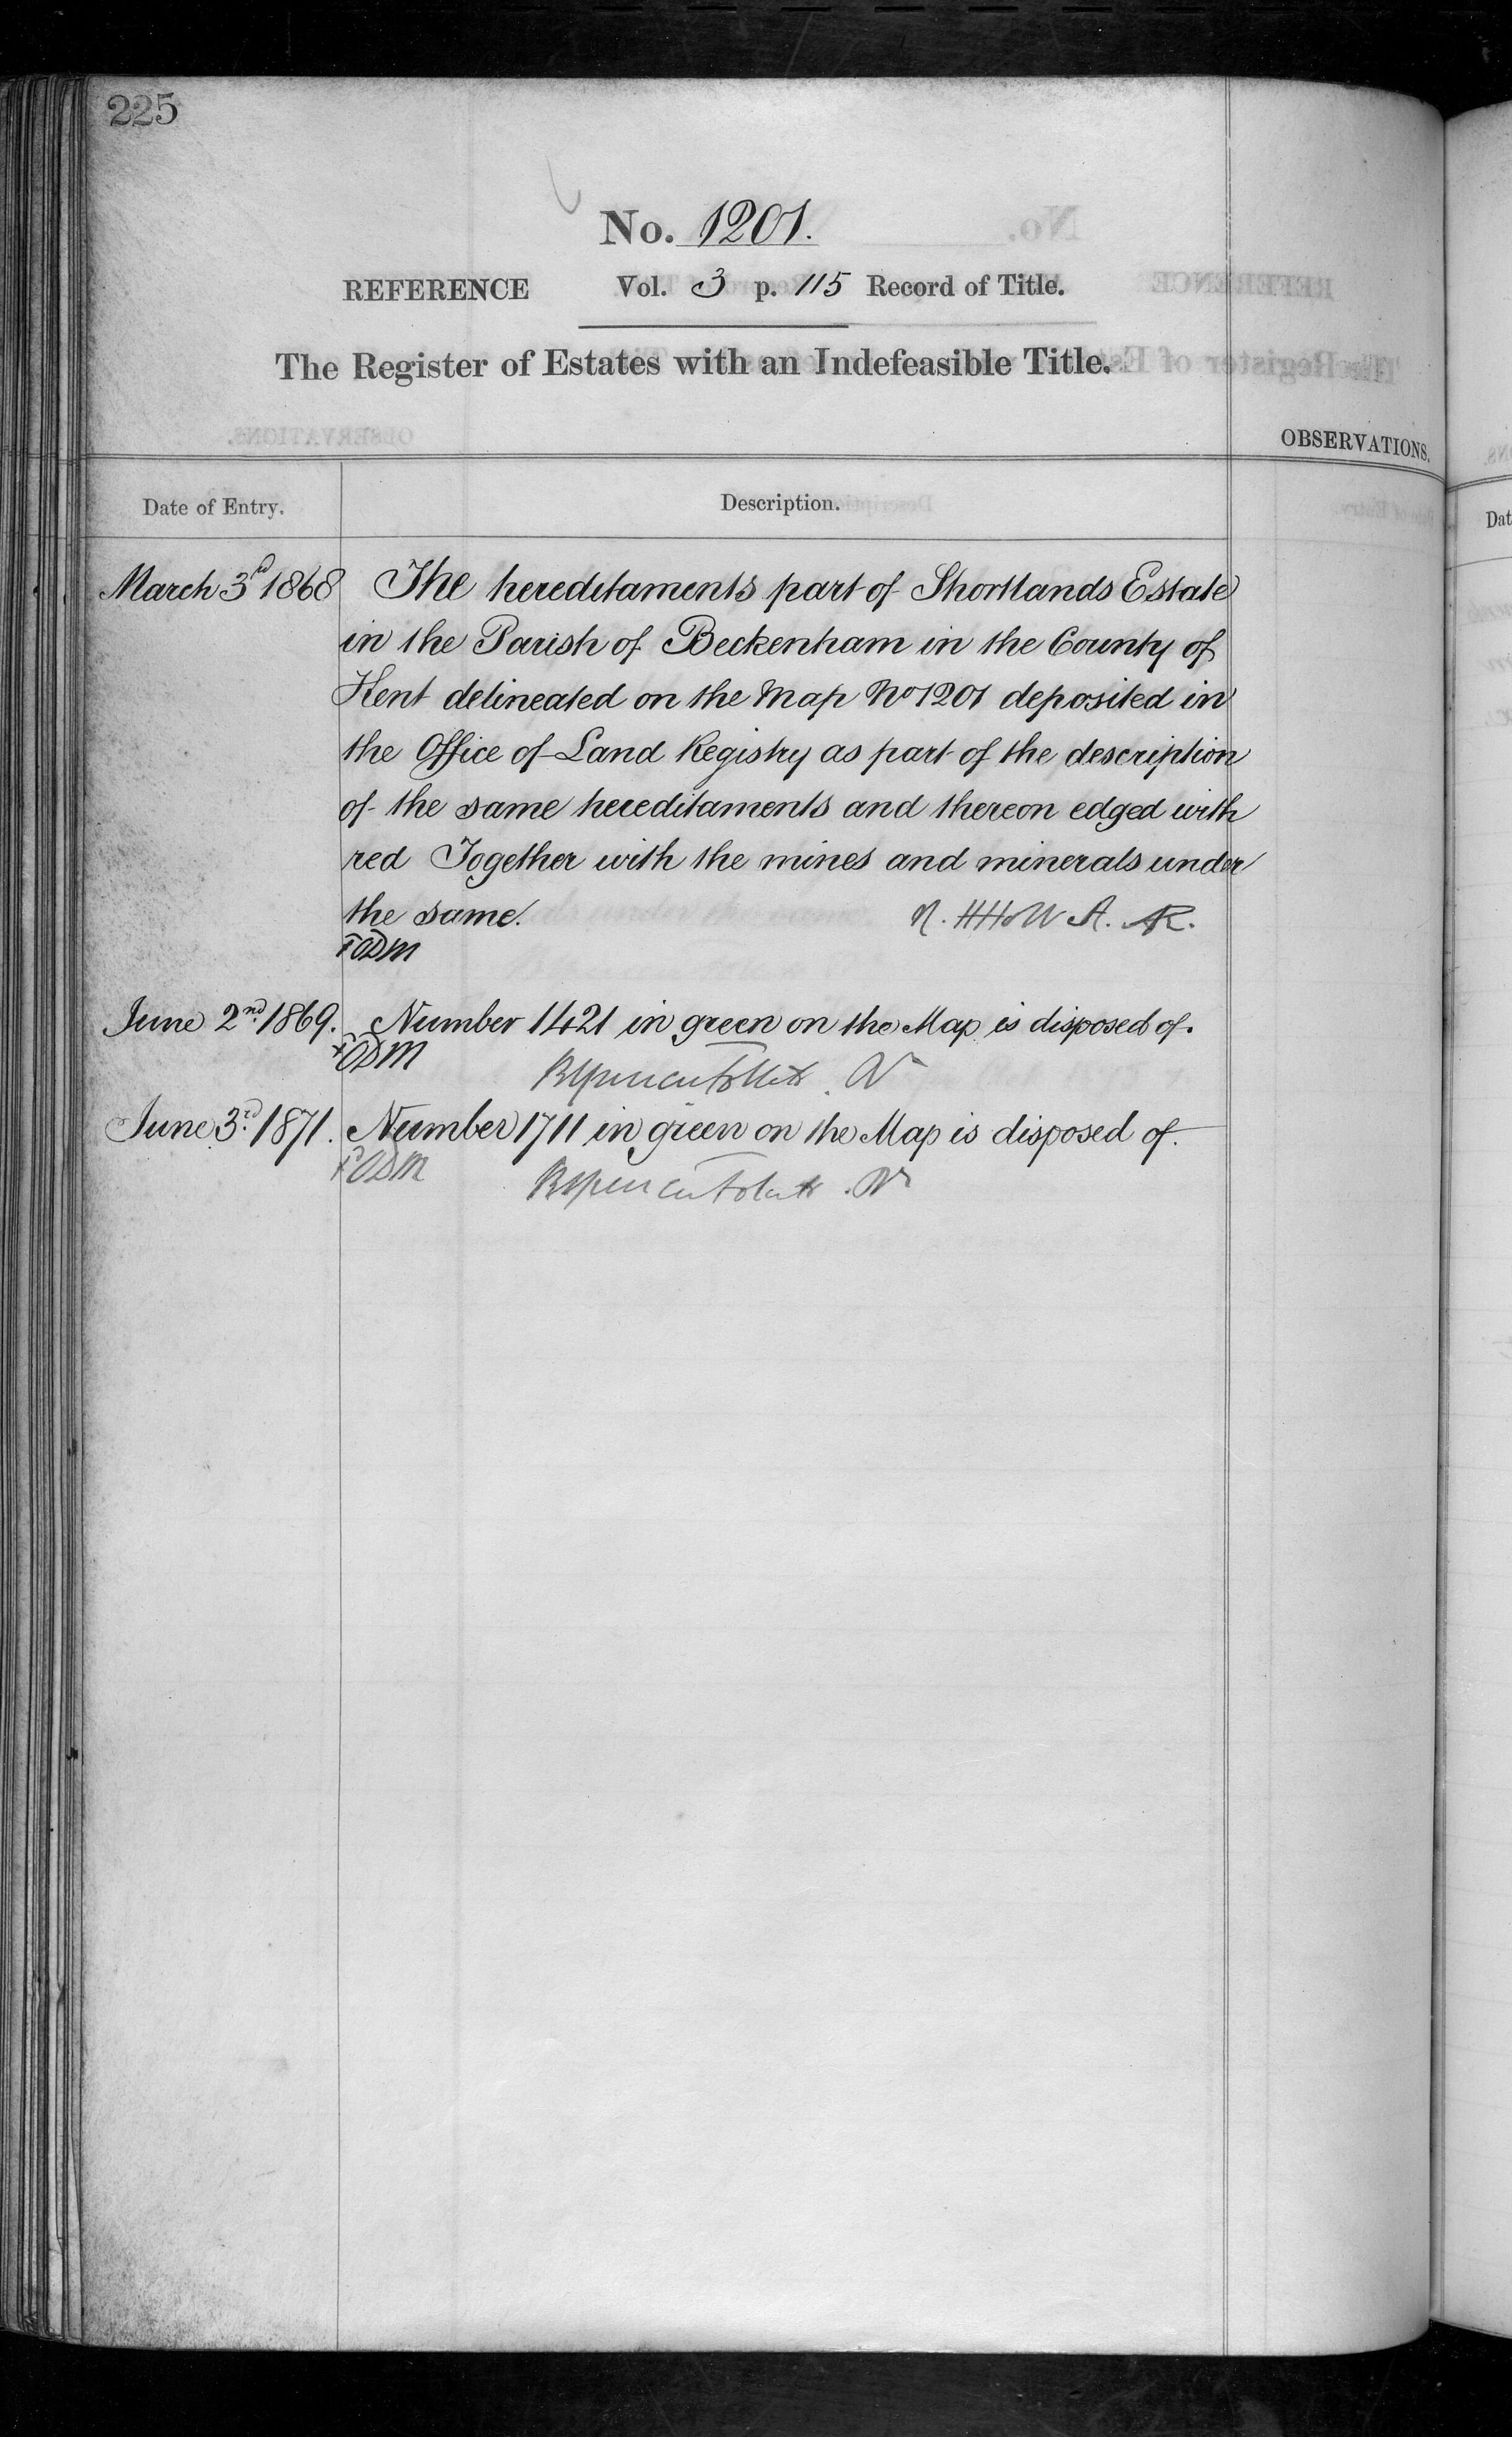 225
No. 1201.
REFERENCE Vol. 3 p. 115 Record of Title.
The Register of Estates with an Indefeasible Title.
OBSERVATIONS.
Date of Entry. Description.
March 3d 1868 The hereditaments part of Shortlands Estate
in the Parish of Beckenham in the County of
Kent delineated on the Map No 1201 deposited in
the Office of Land Registry as part of the description
of the same hereditaments and thereon edged with
red Together with the mines and minerals under
the same.
June 2nd 1869. Number 1421 in green on the Map is disposed of.
June 3rd 1871. Number 1711 in green on the Map is disposed of.
Dat